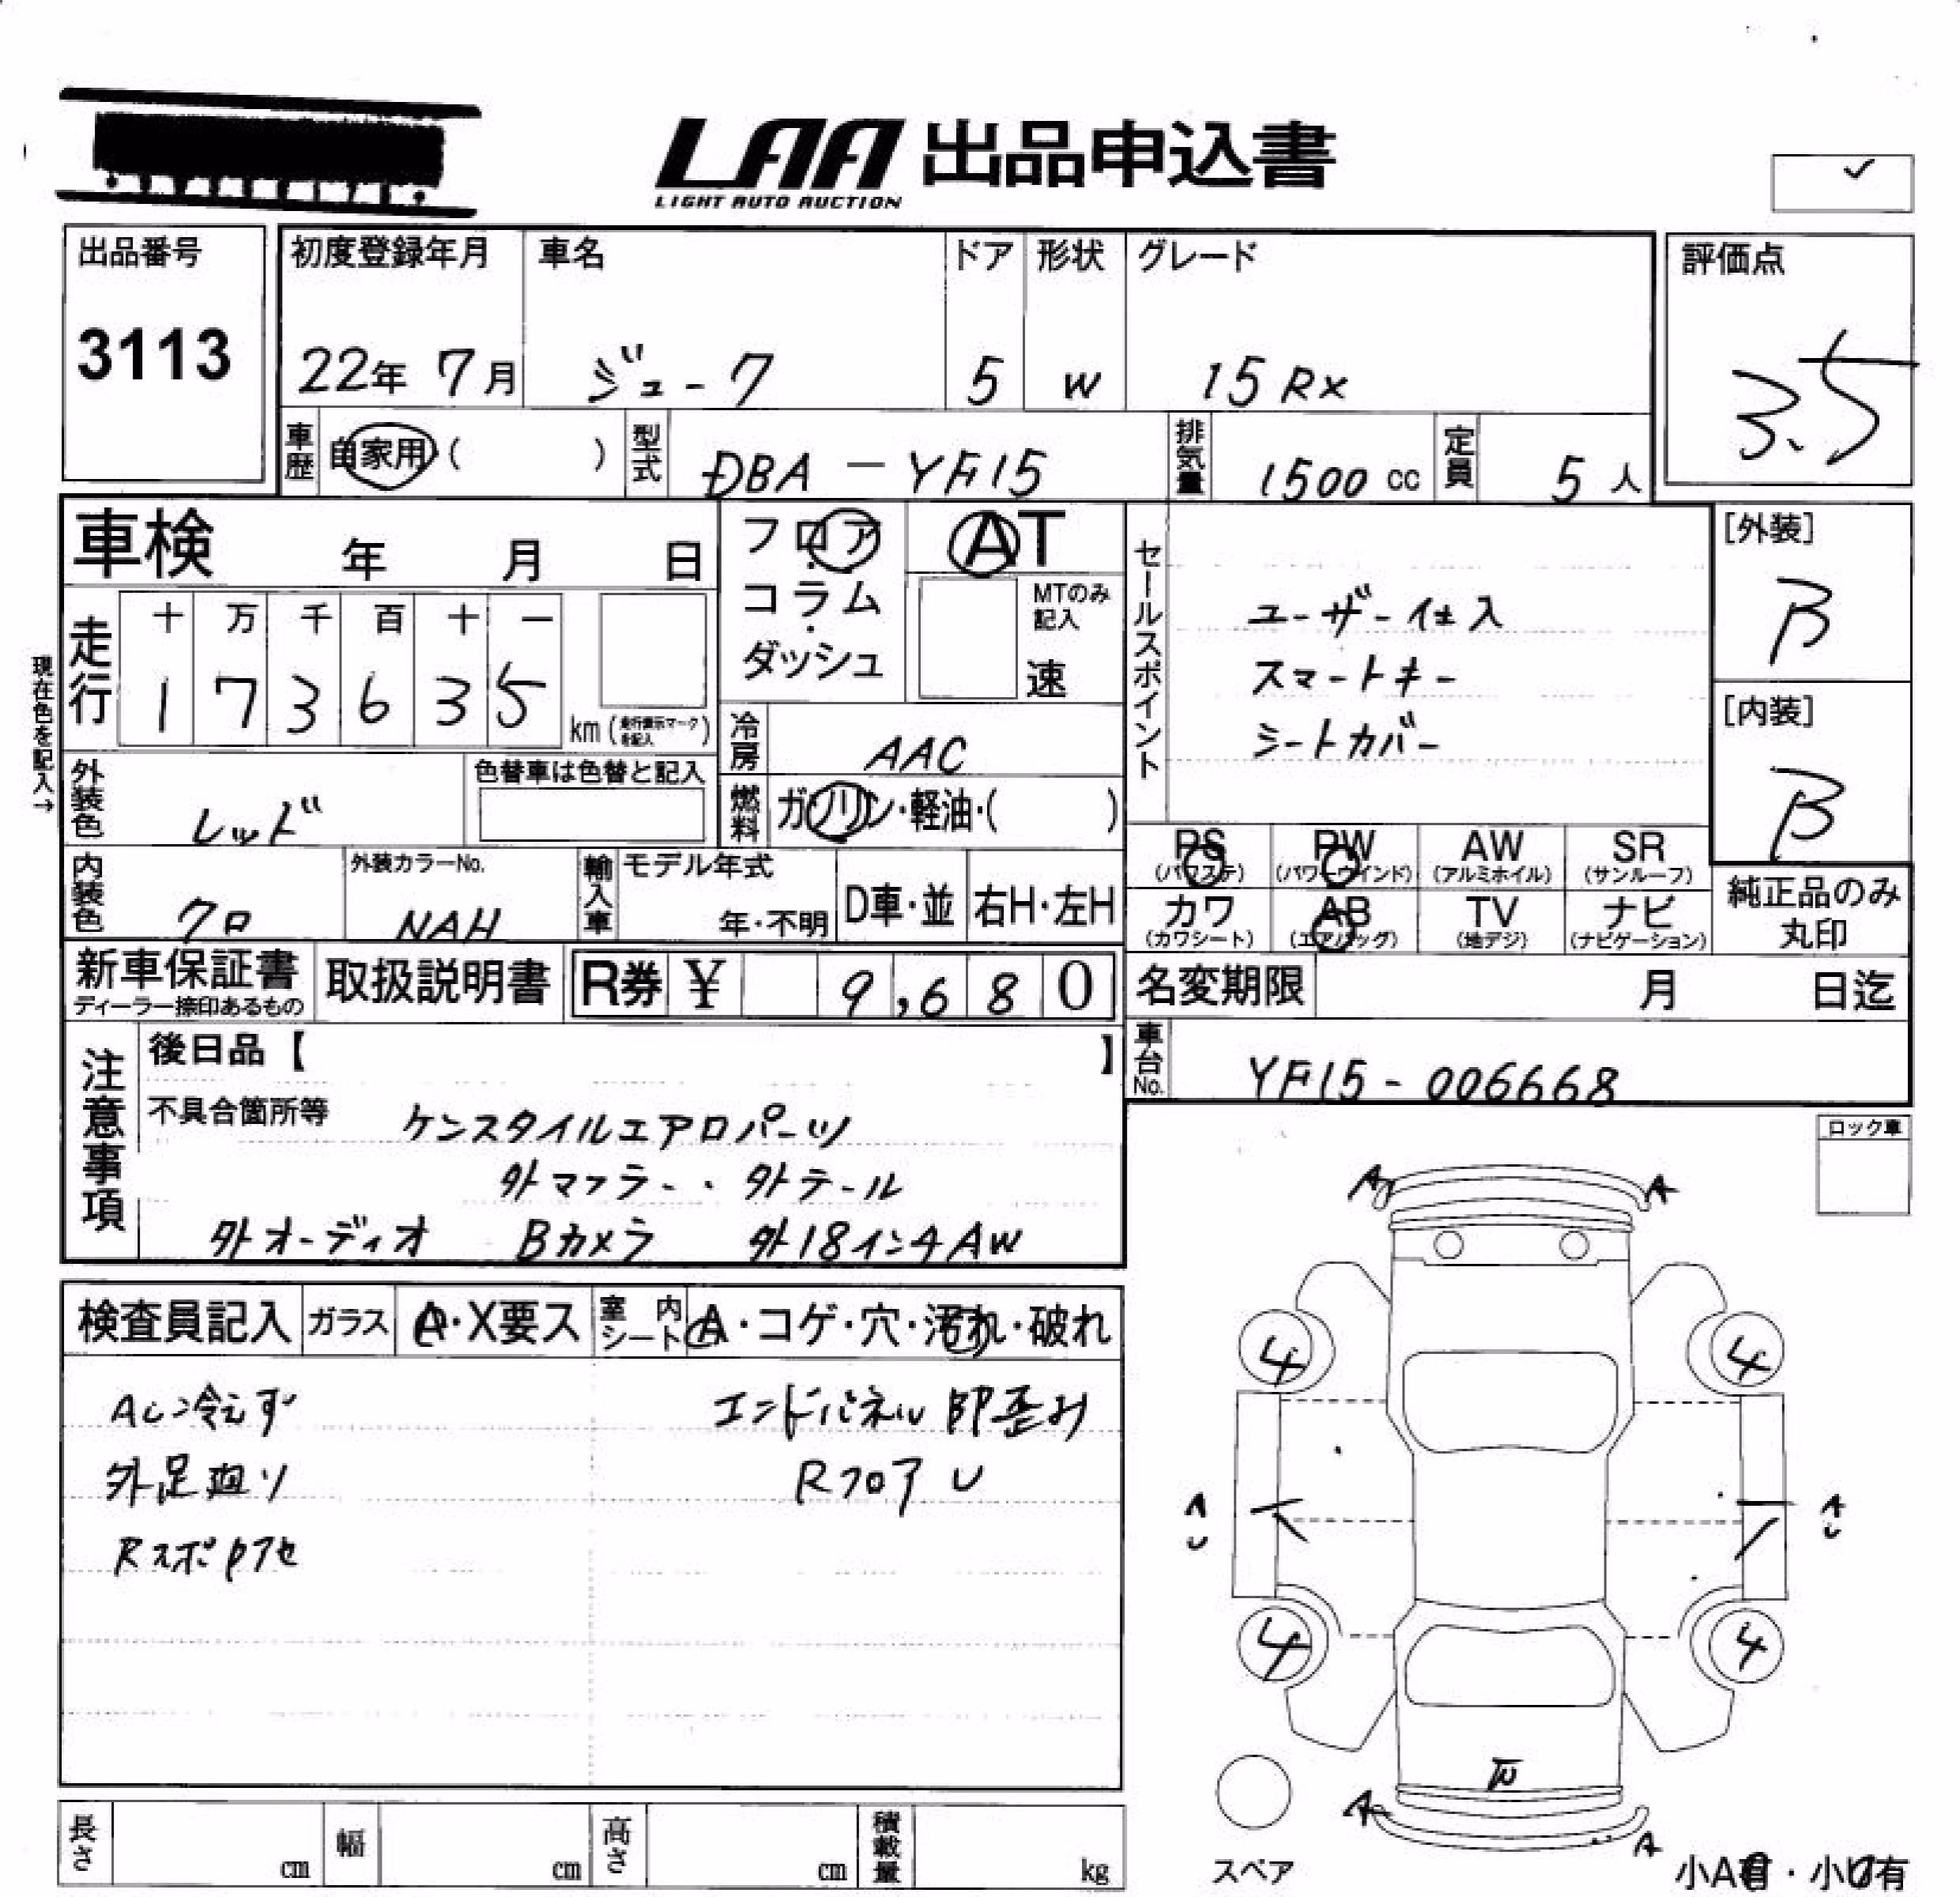 LAA 出品申込書
LIGHT AUTO AUCTION
出品番号
3113
初度登録年月
22年 7月
車名
ジューク
ドア
5
形状
W
グレード
15RX
評価点
3.5
車歴
自家用 ( )
型式
DBA - YF15
排気量
1500 cc
定員
5 人
車検 年 月 日
フロア・
コラム・
ダッシュ
AT
MTのみ記入
速
走行
十 万 千 百 十 一
1 7 3 6 3 5
km (走行表示マークを記入)
現在色を記入→
外装色
レッド
色替車は色替と記入
冷房
AAC
燃料
ガソリン・軽油・( )
内装色
クロ
外装カラーNo.
NAH
輸入車
モデル年式
年・不明
D車・並
右H・左H
セールスポイント
ユーザー仕入
スマートキー
シートカバー
[外装]
B
[内装]
B
PS (パワステ)
PW (パワーウインド)
AW (アルミホイル)
SR (サンルーフ)
カワ (カワシート)
AB (エアバッグ)
TV (地デジ)
ナビ (ナビゲーション)
純正品のみ
丸印
新車保証書
ディーラー捺印あるもの
取扱説明書
R券 ¥ 9,680
名変期限 月 日迄
車台No.
YF15-006668
注意事項
後日品【 】
不具合箇所等
ケンスタイルエアロパーツ
外マフラー・外テール
外オーディオ Bカメラ 外18インチAW
ロック車
検査員記入
ガラス
A・X要ス
室内シート
A・コゲ・穴・汚れ・破れ
AC冷えず
外足廻り
エンドパネル 歪み
Rフロア U
A A
4 4
A U
A U
4 4
A A
スペア
小A有・小U有
長さ cm
幅 cm
高さ cm
積載量 kg